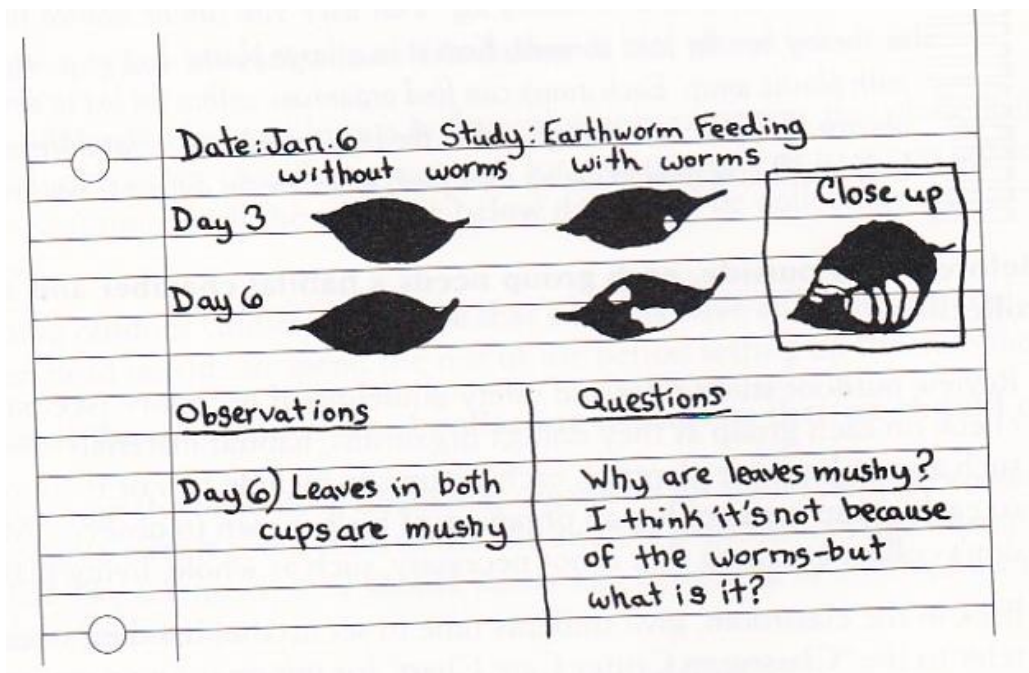 Date: Jan. 6 Study: Earthworm Feeding
without worms with worms
Close up
Day 3
Day 6
Observations
Day 6) Leaves in both
cups are mushy
Questions
Why are leaves mushy?
I think it's not because
of the worms-but
what is it?